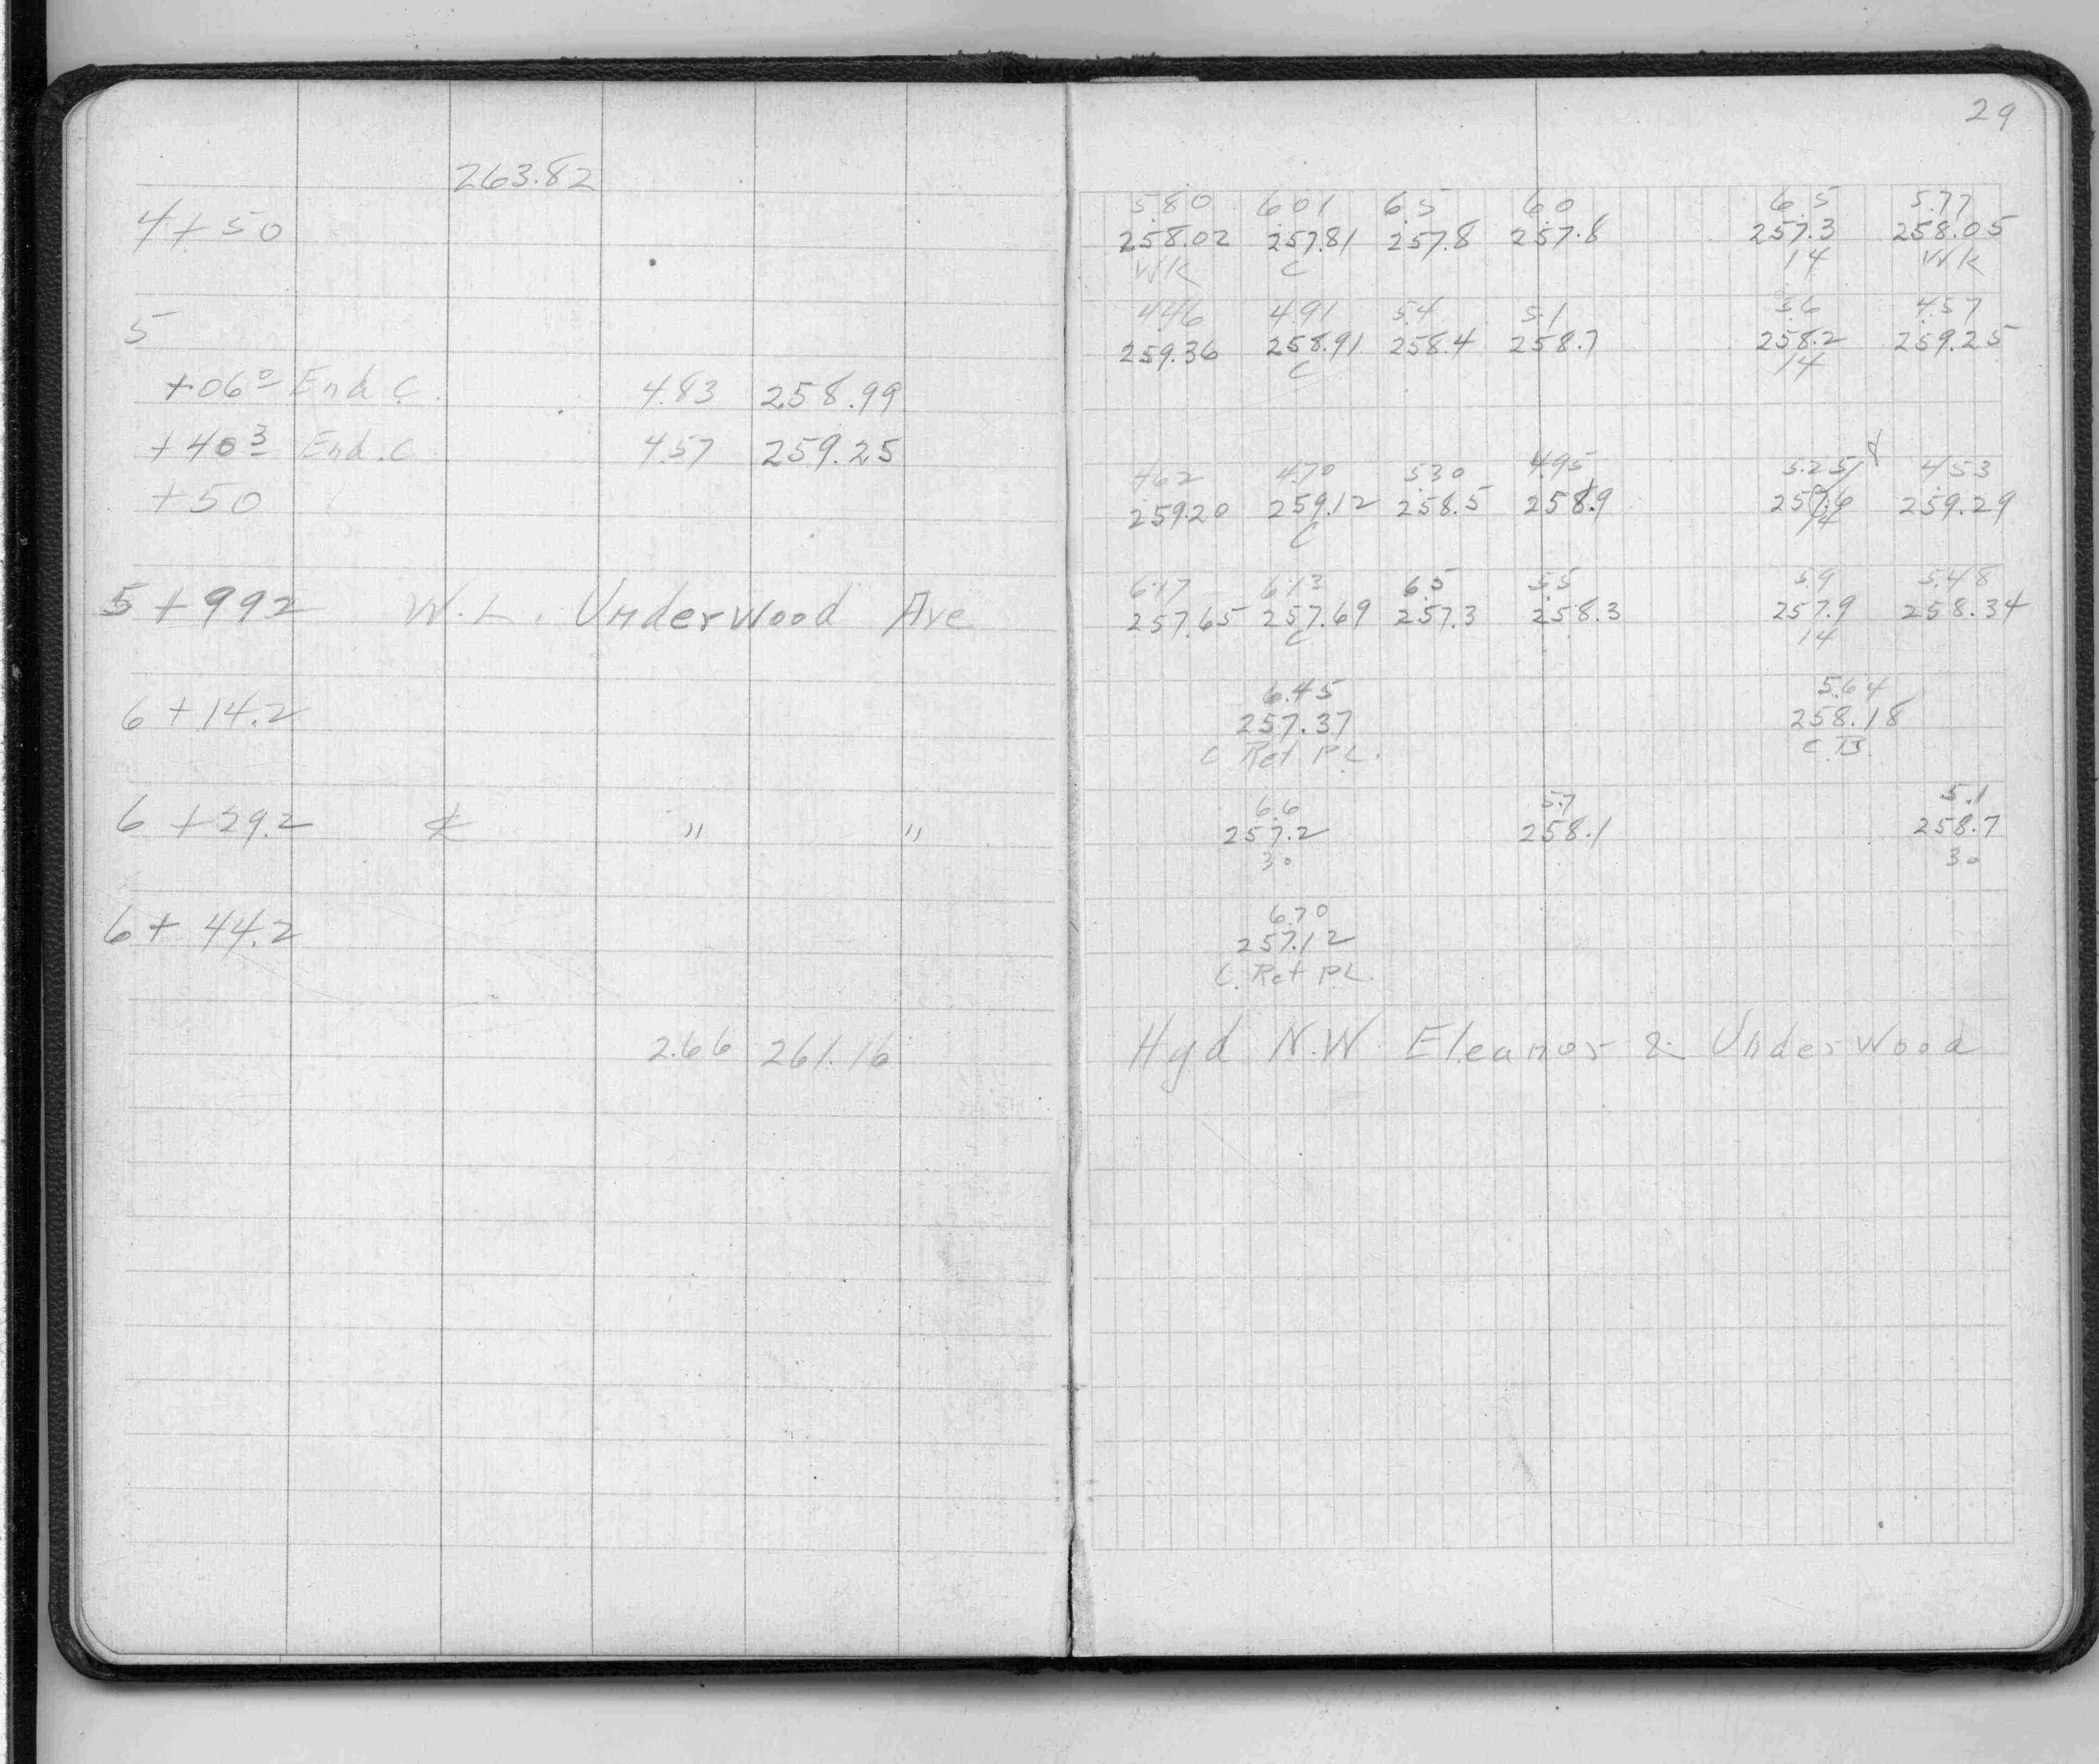 29
263.82
5.80 6.01 6.5 6.0 6.5 5.77
4+50 258.02 257.81 257.8 257.8 257.3 258.05
WK C 14 WK
4.46 4.91 5.4 5.1 5.6 4.57
5 259.36 258.91 258.4 258.7 258.2 259.25
C 14
+06⁰ End C. 4.83 258.99
+40³ End.C 4.57 259.25
4.62 4.70 5.30 4.95 5.25 4.53
+50 259.20 259.12 258.5 258.9 259.29
C 14
6.17 6.13 6.5 5.5 5.9 5.48
5+992 W.L. Underwood Ave 257.65 257.69 257.3 258.3 257.9 258.34
C 14
6.45 5.64
6+14.2 257.37 258.18
C Ret PL. C.B.
6.6 5.7 5.1
6+29.2 ℄ " " 257.2 258.1 258.7
30 30
6.70
6+44.2 257.12
C. Ret PL.
2.66 261.16 Hyd N.W. Eleanor & Underwood